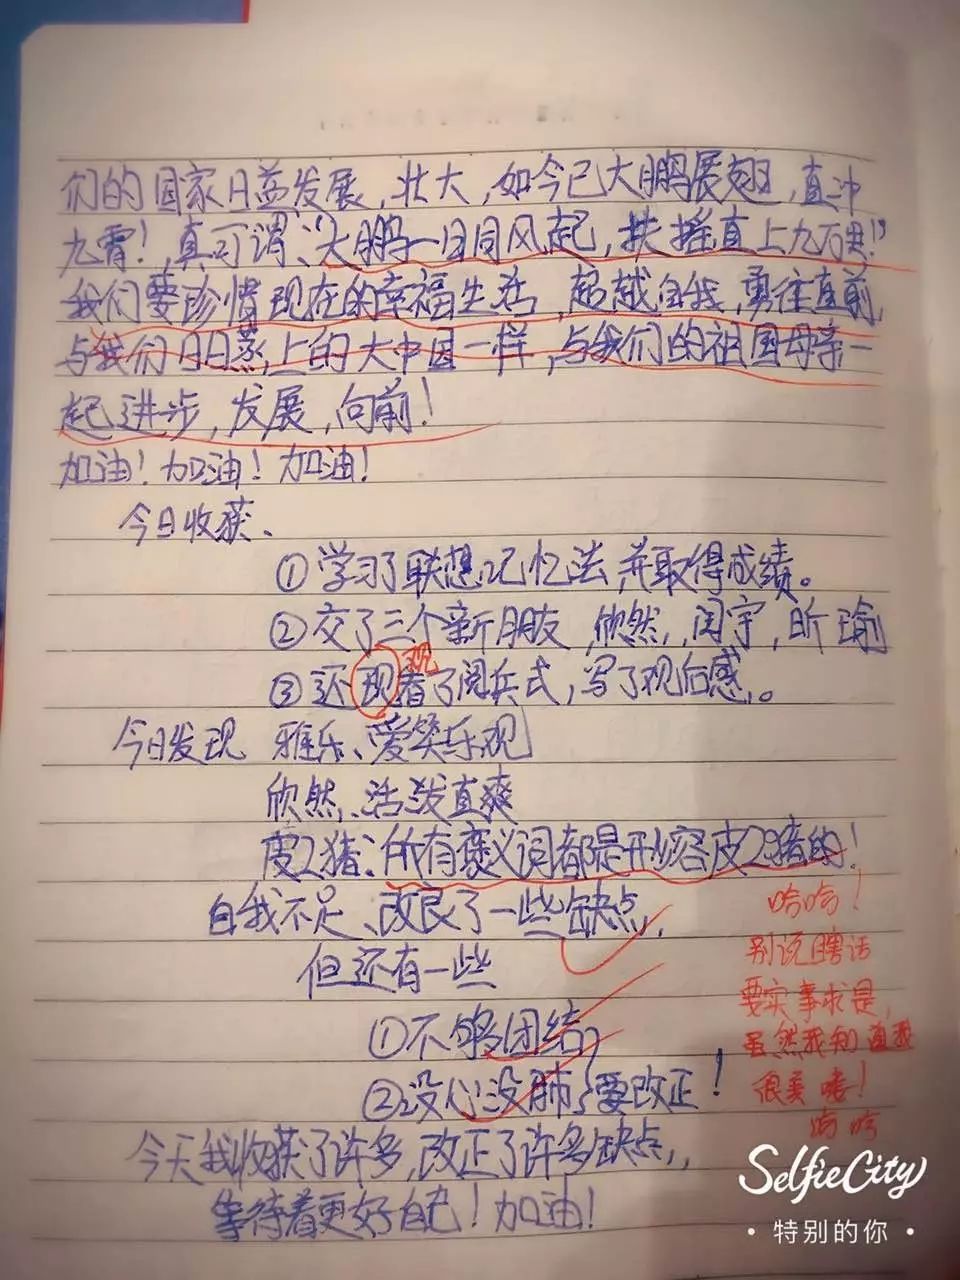 们的国家日益发展,壮大,如今已大鹏展翅,直冲
九霄!真可谓:“大鹏一日同风起,扶摇直上九万里!”
我们要珍惜现在的幸福生活,超越自我,勇往直前,
与我们日日蒸上的大中国一样,与我们的祖国母亲一
起进步,发展,向前!
加油!加油!加油!
今日收获、
①学习了联想记忆法,并取得成绩。
②交了三个新朋友,欣然,闰宇,昕瑜
观
③还现看了阅兵式,写了观后感。
今日发现 雅乐、爱笑乐观
欣然、活泼直爽
皮皮猪:所有褒义词都是形容皮皮猪的!
自我不足、改良了一些缺点,
哈哈!
但还有一些
别说瞎话
要实事求是,
①不够团结
虽然我知道我
②没心没肺}要改正!
很美喽!
哈哈
今天我收获了许多,改正了许多缺点,
等待着更好自己!加油!
SelfieCity
·特别的你·